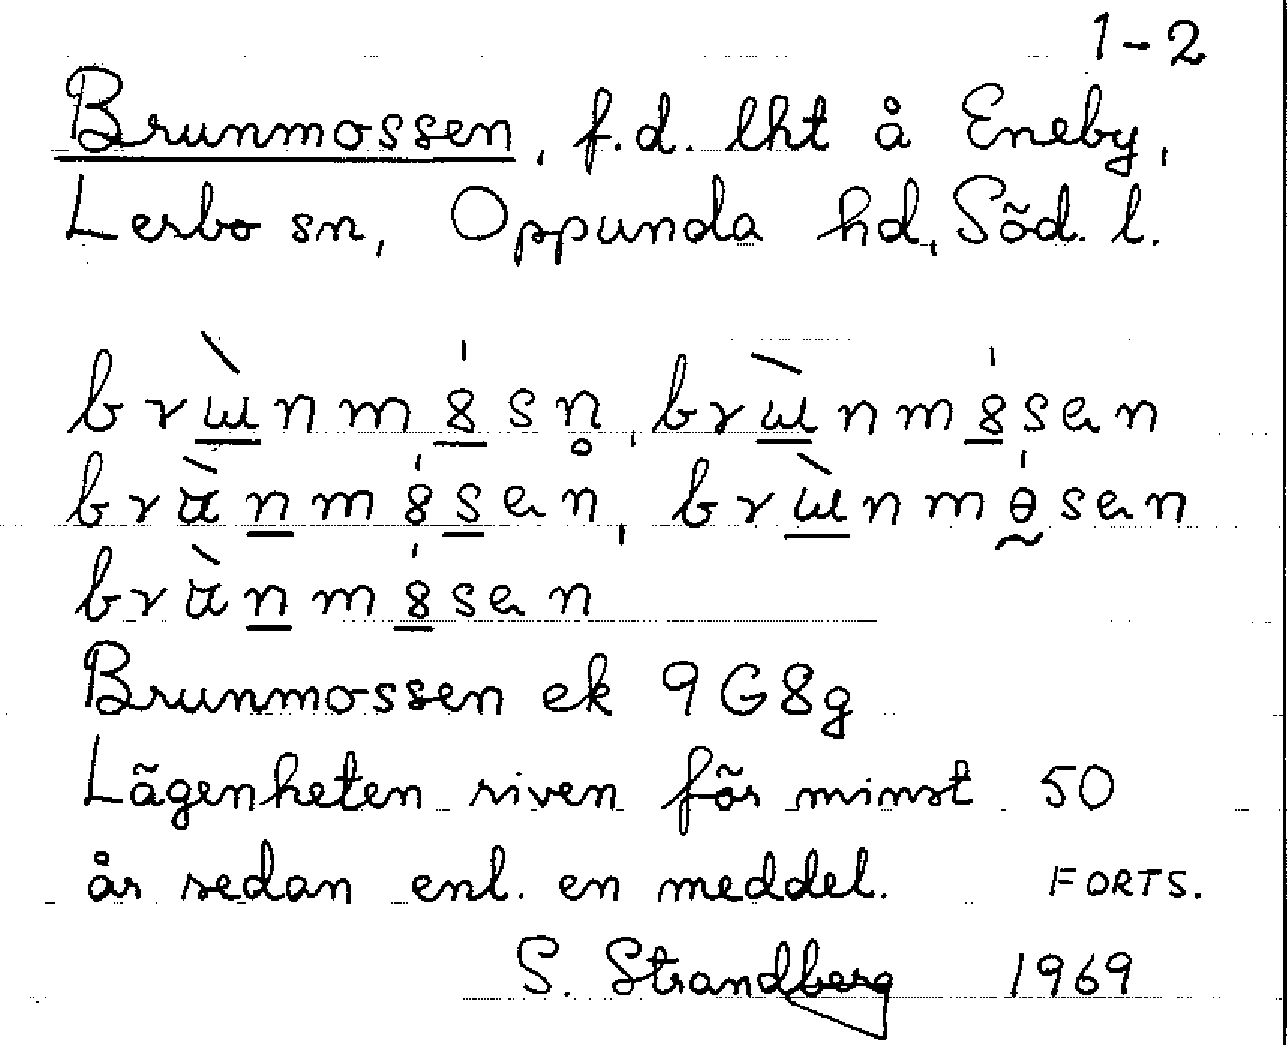 1-2
Brunmossen, f.d. lht å Eneby,
Lerbo sn, Oppunda hd, Söd. l.
Brunmossen ek 9G8g
Lägenheten riven för minst 50
år sedan enl. en meddel. FORTS.
S. Strandberg 1969